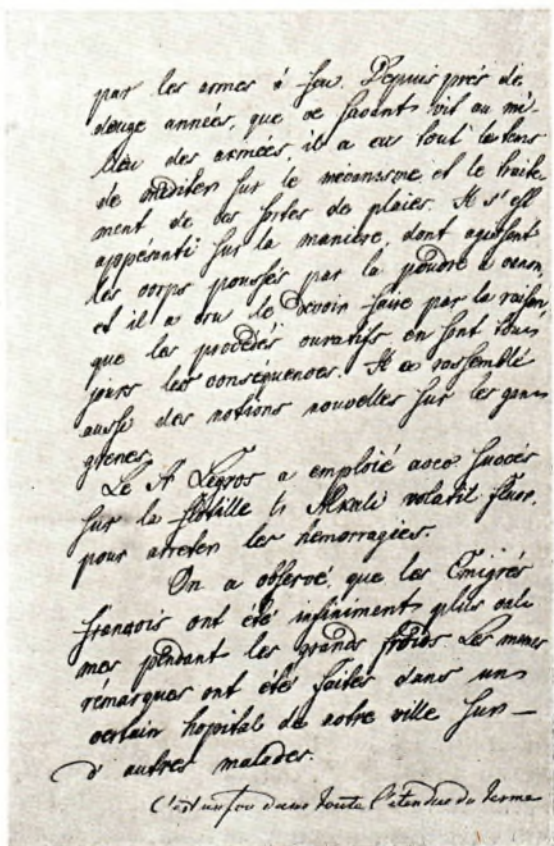 par les armes à feu. Depuis prés de
douze années, que ce savant vit au mi-
lieu des armées, il a eu tout le tems
de méditer sur le mécanisme et le traite
ment de ces sortes de plaies. Il s'est
appésanti sur la manière, dont agissent
les corps poussés par la poudre à canon,
et il a cru le devoir faire par la raison,
que les procédés curatifs en sont tou-
jours les conséquences. Il a rassemblé
aussi des notions nouvelles sur les gan-
grenes.
Le Legros a emploié avec succés
sur la flotille Alkali volatil fluor,
pour arreter les hemorragies.
On a observé, que les Émigrés
françois ont été infiniment plus cal-
mes pendant les grands froids. Les memes
rémarques ont été faites dans un
certain hopital de notre ville sur
d'autres malades.
C'est un fou dans toute l'étendue du terme